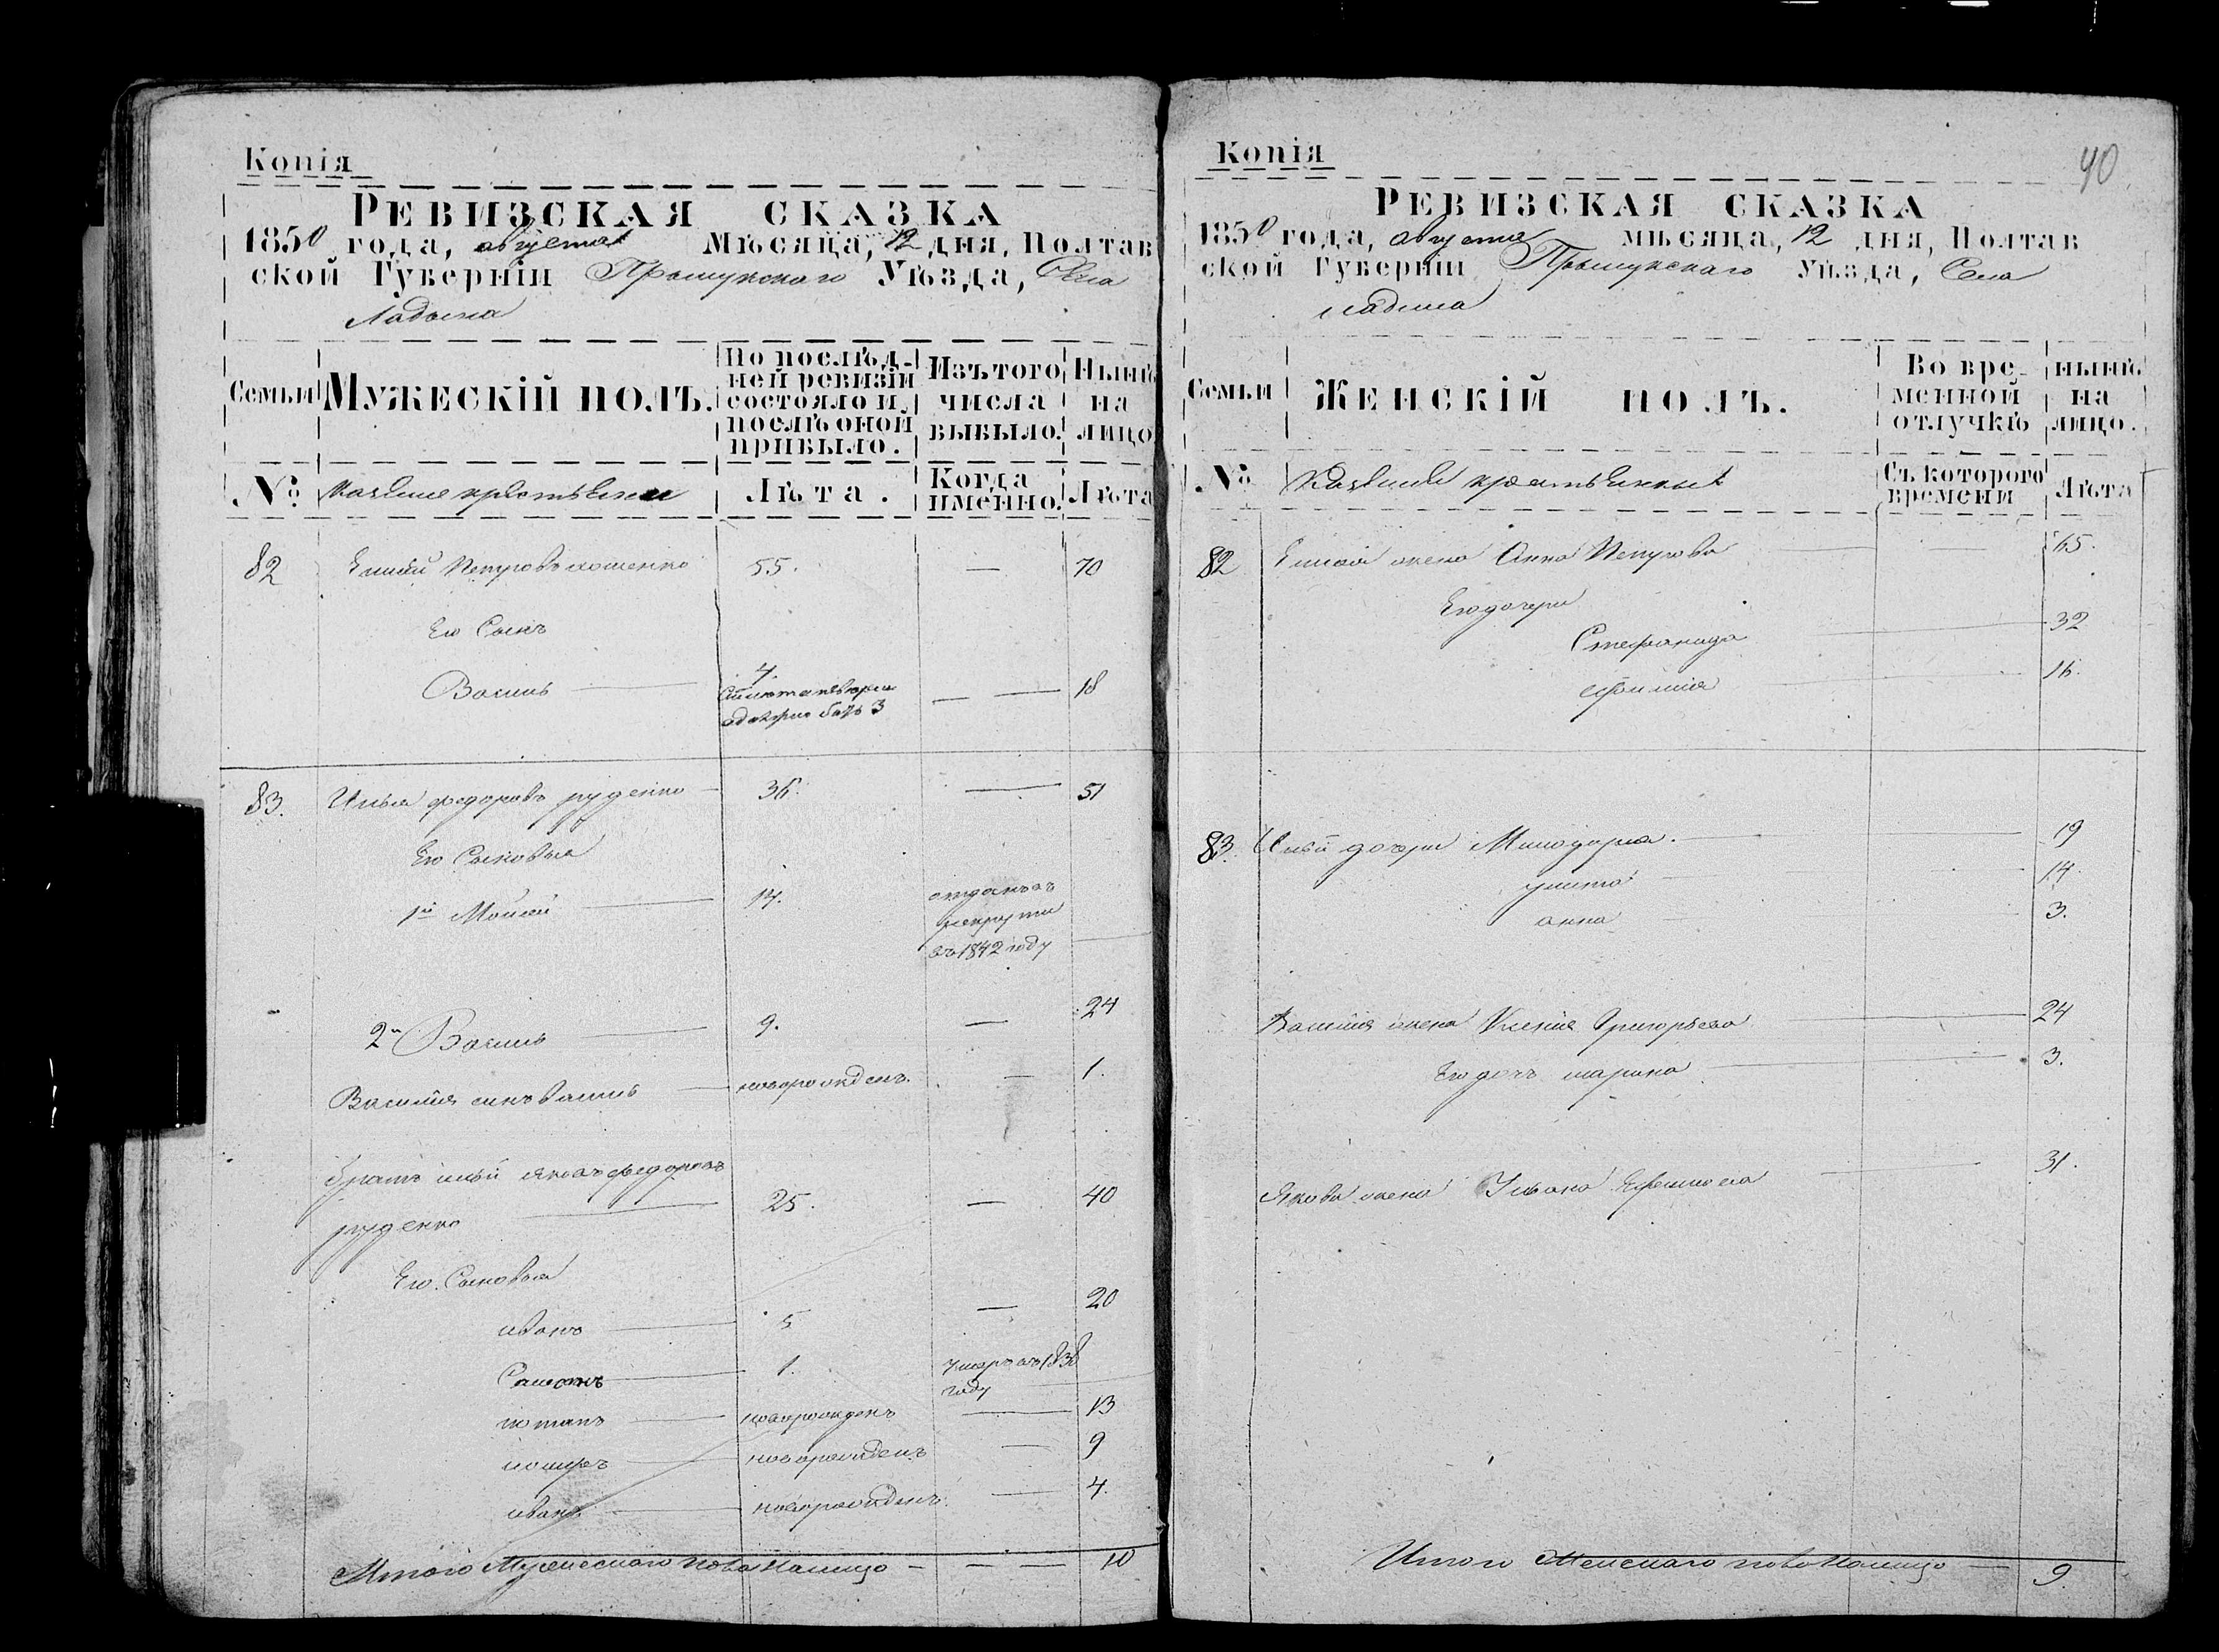 Копія
РЕВИЗСКАЯ СКАЗКА
1850 года, августа Мѣсяца, 12 дня, Полтав
ской Губерніи Прылуцкаго Уѣзда, Села
Ладына
Семьи
МУЖЕСКІЙ ПОЛЪ.
По послѣд-
ней ревизіи
состояло и
послѣ оной
прибыло.
Изъ того
числа
выбыло.
Нынѣ
на
лицо
№
Казеные крестьяне
Лѣта.
Когда
именно.
Лѣта
82 Петровъ 55. — 70
Его Сынъ
Василь 4. — 18
3
83. Илья федоровъ руденко 36. — 51
Его Сыновья
1й Мойсей 14. отданъ въ
рекруты
въ 1842 году
2й Василь 9. — 24
Василія синъ Василь новорожденъ. — 1.
братъ ильи яковъ федоровъ
руденко 25. — 40
Его Сыновья
иванъ 5 — 20
Самсонъ 1. умеръ въ 1838
году
потапъ новорожденъ — 13
новорожденъ — 9
иванъ новорожденъ. — 4.
Итого Мужескаго пола налицо — — — 10
Копія
40
РЕВИЗСКАЯ СКАЗКА
1850 года, августа мѣсяца, 12 дня, Полтав
ской Губерніи Прылуцкаго Уѣзда, Села
ладина
Семьи
ЖЕНСКІЙ ПОЛЪ.
Во вре-
менной
отлучкѣ
нынѣ
на
лицо.
№
Казеные крестьянки
Съ котораго
времени
Лѣта
82 жена Анна Петрова — 65.
Его дочери
Стефанида 32
16.
83. Ильи дочери Минодора. 19
улита 14.
анна 3.
Василія жена Ксенія Григорьева 24
Его дочь марина 3.
Якова жена Ульяна Ефимова 31.
Итого Женскаго пола налицо — 9.